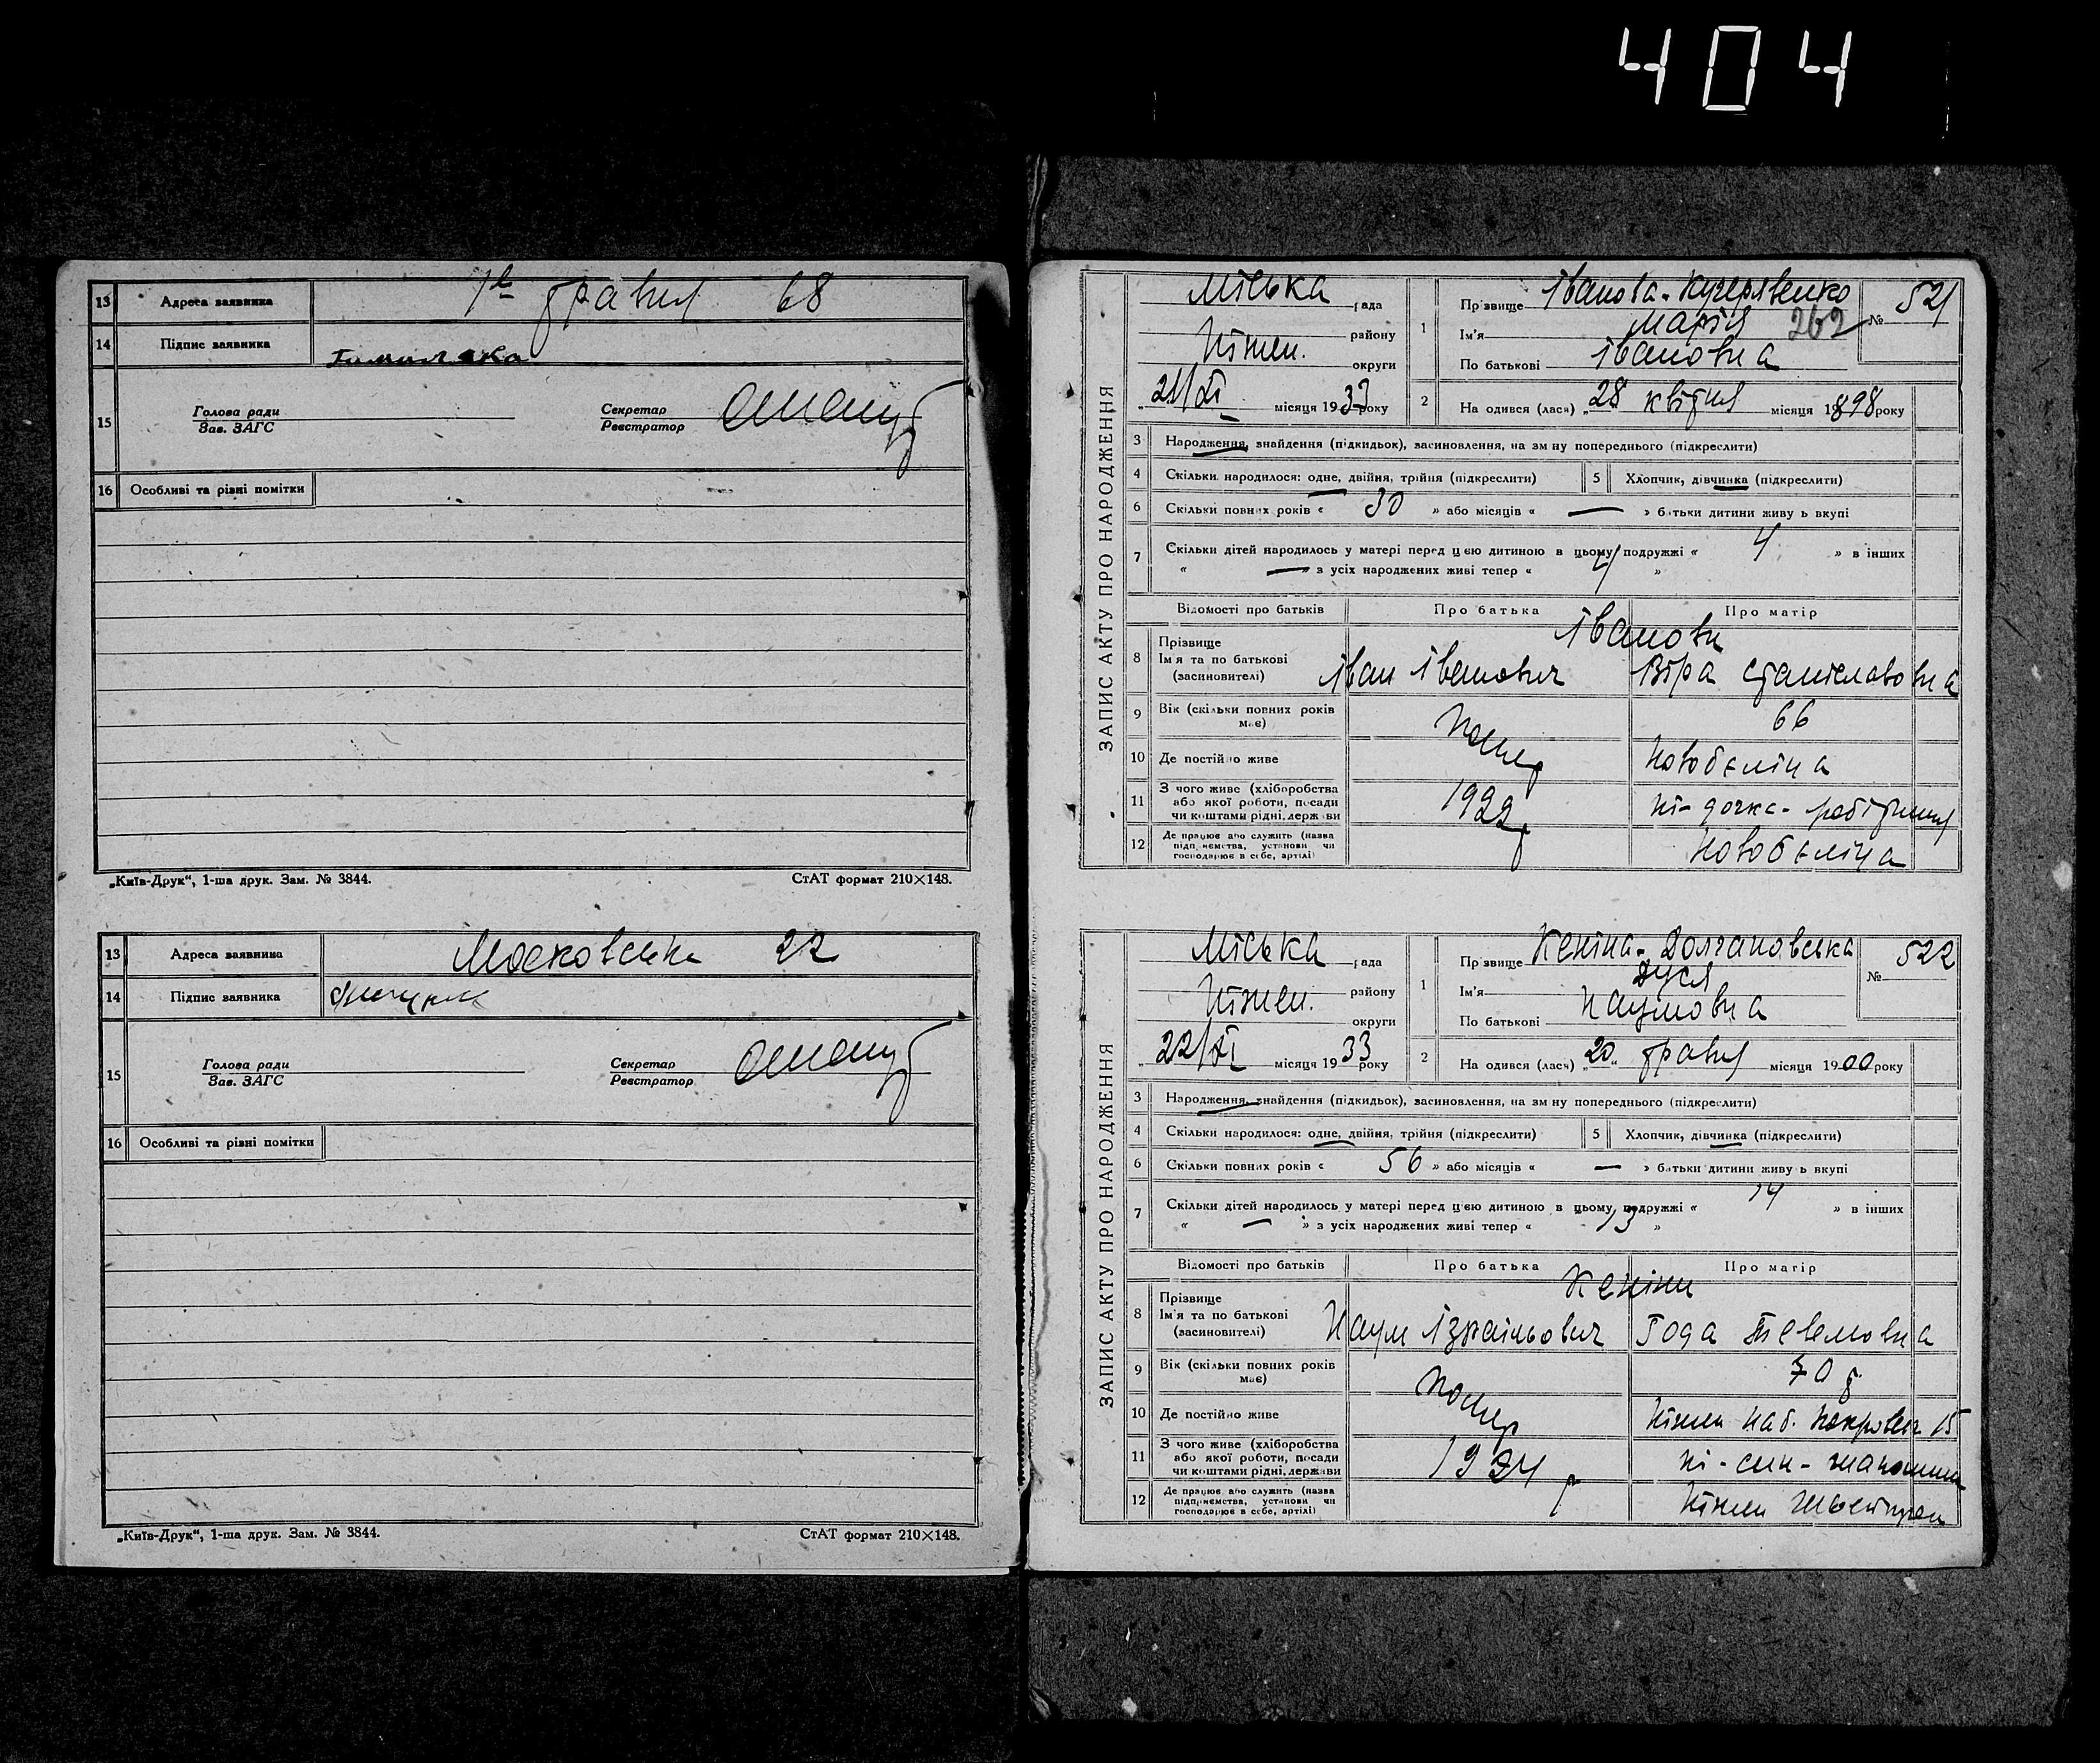 404
13 Адреса заявника 1го травня 68
14 Підпис заявника
15 Голова ради Секретар
Зав. ЗАГС Реєстратор
16 Особливі та різні помітки
„Київ-Друк“, 1-ша друк. Зам. № 3844. СтАТ формат 210×148.
13 Адреса заявника Московська 22
14 Підпис заявника
15 Голова ради Секретар
Зав. ЗАГС Реєстратор
16 Особливі та різні помітки
„Київ-Друк“, 1-ша друк. Зам. № 3844. СтАТ формат 210×148.
ЗАПИС АКТУ ПРО НАРОДЖЕННЯ
Міська рада
Ніжен. району
округи
„21/XI місяця 1933 року
1 Прізвище Іванова-Кучерявенко № 521
Ім'я Марія 262
По батькові Івановна
2 На одився (лася) „28 квітня місяця 1898 року
3 Народження, знайдення (підкидьок), засиновлення, на зм ну попереднього (підкреслити)
4 Скільки народилося: одне, двійня, трійня (підкреслити) 5 Хлопчик, дівчинка (підкреслити)
6 Скільки повних років « 30 » або місяців « — » батьки дитини живу ь вкупі
7 Скільки дітей народилось у матері перед цією дитиною в цьому подружжі « 4 » в інших
« — » з усіх народжених живі тепер « 4 »
Відомості про батьків Про батька Про матір
8 Прізвище Іванови
Ім'я та по батькові Іван Іванович Віра Станіславовна
(засиновителі)
9 Вік (скільки повних років має) Помер 66
10 Де постійно живе Новобеліца
11 З чого живе (хліборобства або якої роботи, посади чи коштами рідні, держави 1922р
12 Де працює або служить (назва підприємства, установи чи господарює в себе, артілі) Новобеліца
ЗАПИС АКТУ ПРО НАРОДЖЕННЯ
Міська рада
Ніжен. району
округи
„22/XI місяця 1933 року
1 Прізвище Кеніна-Долгановська № 522
Ім'я Дуся
По батькові Наумовна
2 На одився (лася) „20„ травня місяця 1900 року
3 Народження, знайдення (підкидьок), засиновлення, на зм ну попереднього (підкреслити)
4 Скільки народилося: одне, двійня, трійня (підкреслити) 5 Хлопчик, дівчинка (підкреслити)
6 Скільки повних років « 56 » або місяців « — » батьки дитини живу ь вкупі
7 Скільки дітей народилось у матері перед цією дитиною в цьому подружжі « 14 » в інших
« — » з усіх народжених живі тепер « 13 »
Відомості про батьків Про батька Про матір
8 Прізвище Кеніни
Ім'я та по батькові Наум Ізраїльович Года
(засиновителі)
9 Вік (скільки повних років має) Помер 70
10 Де постійно живе Ніжен наб. 15
11 З чого живе (хліборобства або якої роботи, посади чи коштами рідні, держави ні - син -
12 Де працює або служить (назва підприємства, установи чи господарює в себе, артілі) Ніжен